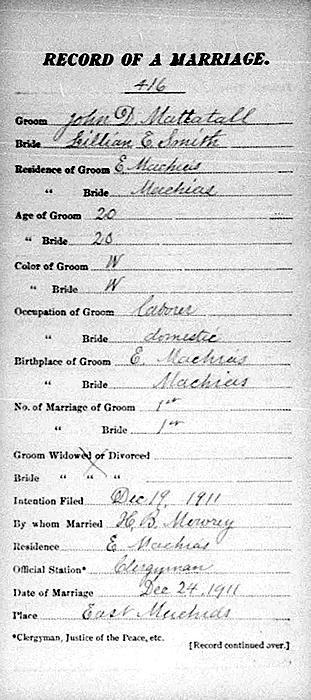 RECORD OF A MARRIAGE.
416
Groom John D. Mattatall
Bride Lillian E. Smith
Residence of Groom E Machias
" Bride Machias
Age of Groom 20
" Bride 20
Color of Groom W
" Bride W
Occupation of Groom laborer
" Bride domestic
Birthplace of Groom E. Machias
" Bride Machias
No. of Marriage of Groom 1st
" Bride 1st
Groom Widowed or Divorced
Bride " " "
Intention Filed Dec 19, 1911
By whom Married H. B. Mowrey
Residence E Machias
Official Station* Clergyman
Date of Marriage Dec 24, 1911
Place East Machias
*Clergyman, Justice of the Peace, etc.
[Record continued over.]